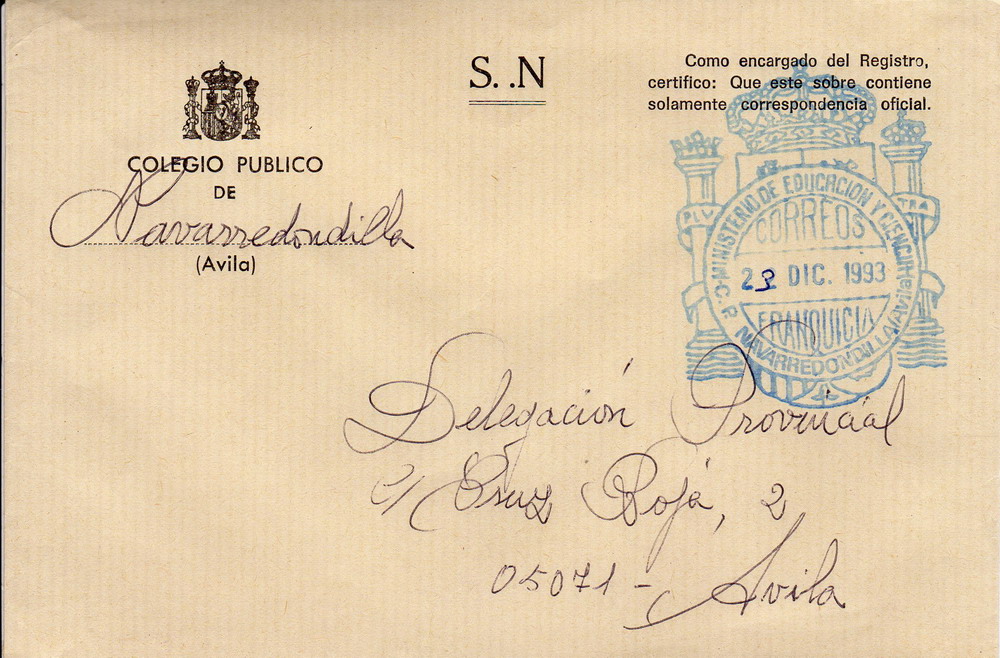 COLEGIO PUBLICO
DE
Navarredondilla
(Avila)
S. .N
Como encargado del Registro,
certifico: Que este sobre contiene
solamente correspondencia oficial.
PLV TRA
MINISTERIO DE EDUCACION Y CIENCIA
CORREOS
23 DIC. 1993
FRANQUICIA
C. P. NAVARREDONDILLA (Avila)
Delegación Provincial
C/ Cruz Roja, 2
05071 - Avila